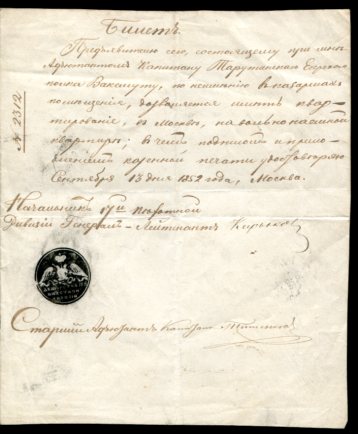 Билетъ.
Предъявителю сего, состоящему при мнѣ
Адъютантомъ Капитану Тарутинскаго Егерскаго
полка Вакситу, по неимѣнію въ казармахъ
помѣщенія, дозволяется имѣть квар-
тированіе, въ Москвѣ, на вольнонаемной
квартирѣ; въ чемъ подписомъ и прило-
женіемъ казенной печати удостовѣряю
Сентября 13 дня 1852 года, Москва.
№ 2312
Начальникъ 17й Пѣхотной
Дивизіи Генералъ-Лейтенантъ Кирьяковъ
Старшій Адъютантъ Капитанъ